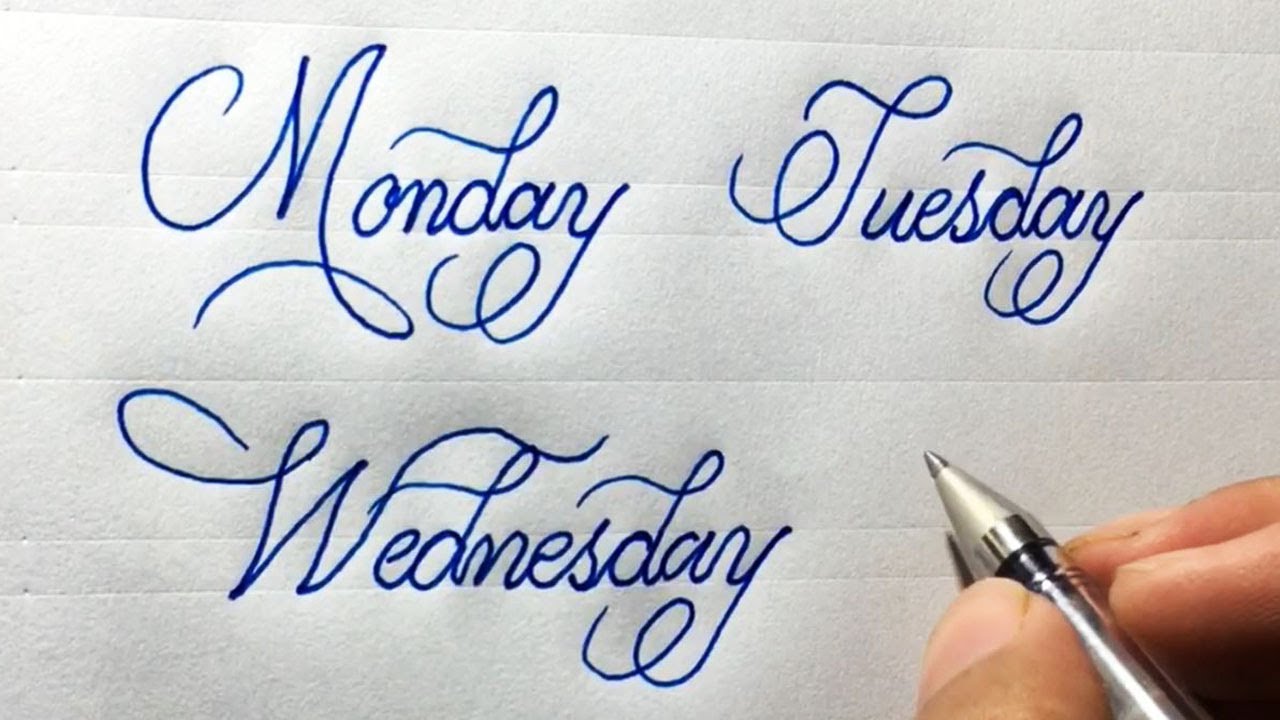 Monday Tuesday
Wednesday